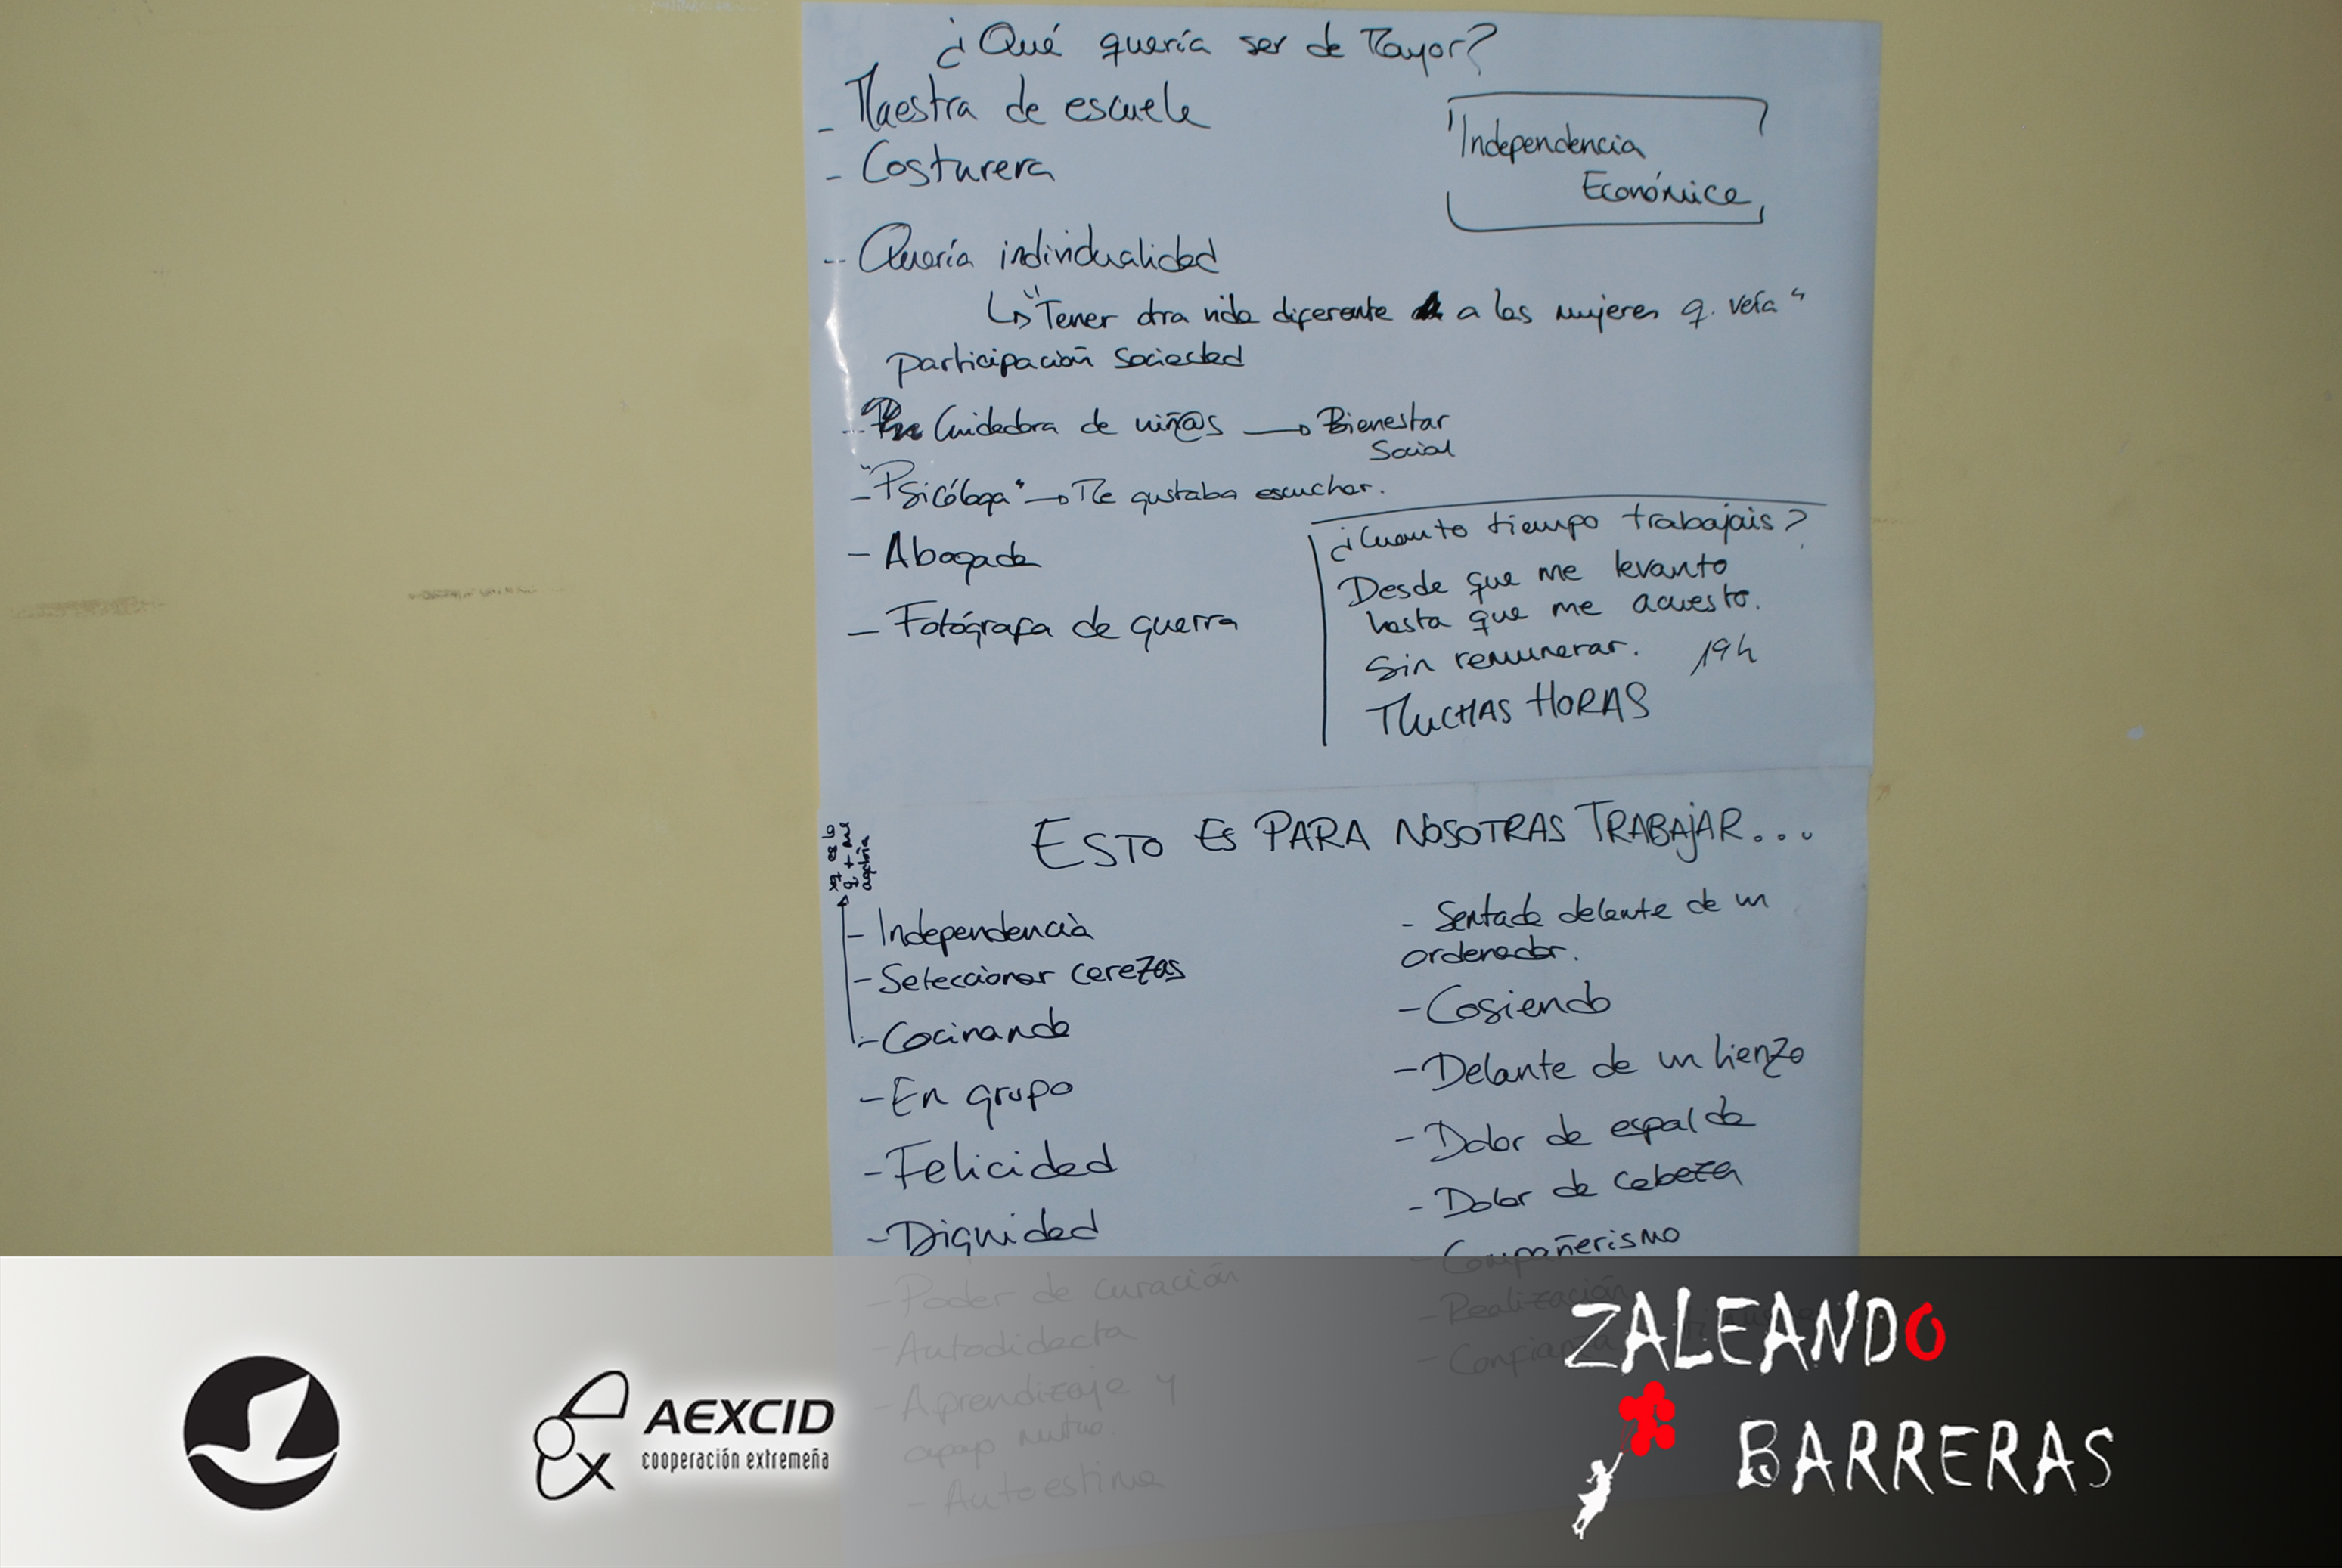 ¿Qué quería ser de Mayor?
- Maestra de escuela
- Costurera
Independencia
Económica
- Quería individualidad
↳ "Tener otra vida diferente a las mujeres q. veía"
Participación sociedad
- Cuidadora de niñ@s → Bienestar
Social
- "Psicóloga" → Me gustaba escuchar.
- Abogada
- Fotógrafa de guerra
¿Cuanto tiempo trabajais?
Desde que me levanto
hasta que me acuesto.
Sin remunerar. 19h
MUCHAS HORAS
ESTO ES PARA NOSOTRAS TRABAJAR...
es lo
q + me
- Independencia
- Seleccionar cerezas
- Cocinando
- En grupo
- Felicidad
- Dignidad
- Poder de curación
- Autodidacta
- Aprendizaje y
apoyo mutuo.
- Autoestima
- Sentada delante de un
ordenador.
- Cosiendo
- Delante de un lienzo
- Dolor de espalda
- Dolor de cabeza
- Compañerismo
- Realización
- Confianza
AEXCID
cooperación extremeña
ZALEANDO
BARRERAS